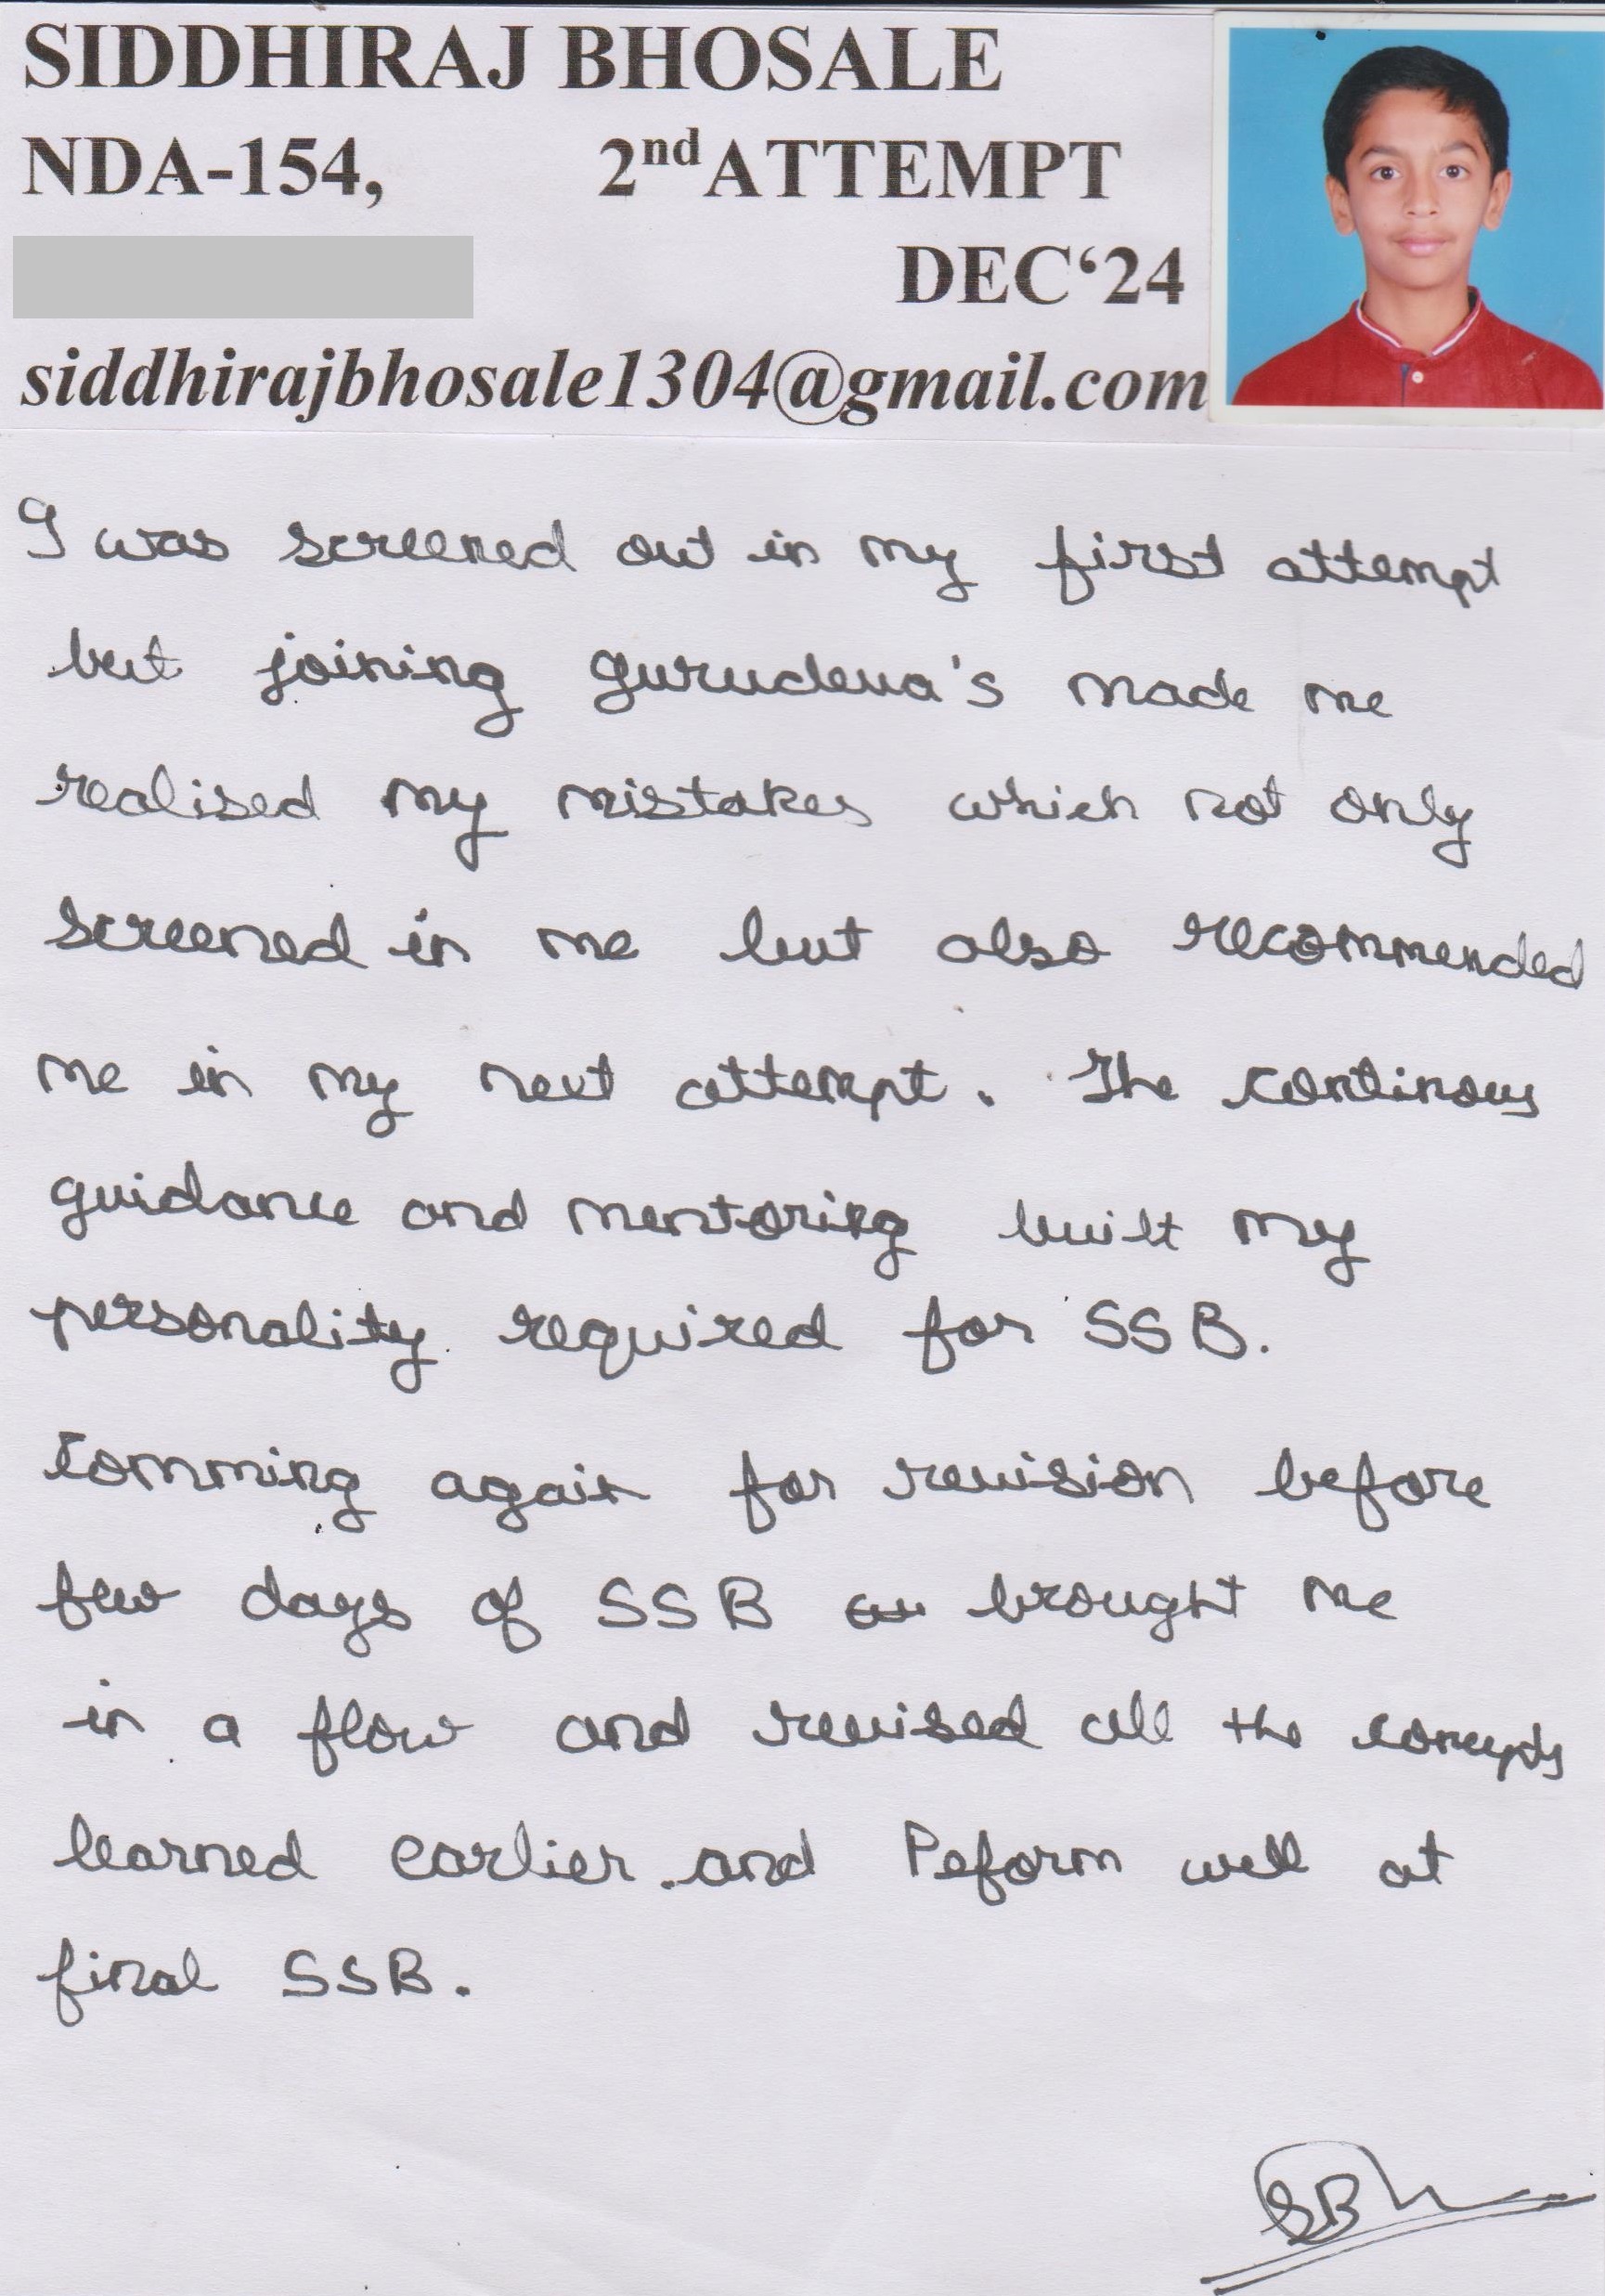 SIDDHIRAJ BHOSALE
NDA-154, 2nd ATTEMPT
DEC‘24
siddhirajbhosale1304@gmail.com
I was screened out in my first attempt
but joining gurudeva's made me
realised my mistakes which not only
screened in me but also recommended
me in my next attempt. The continous
guidance and mentoring built my
personality required for SSB.
Comming again for revision before
few days of SSB brought me
in a flow and revised all the concepts
learned earlier and Peform well at
final SSB.
SB